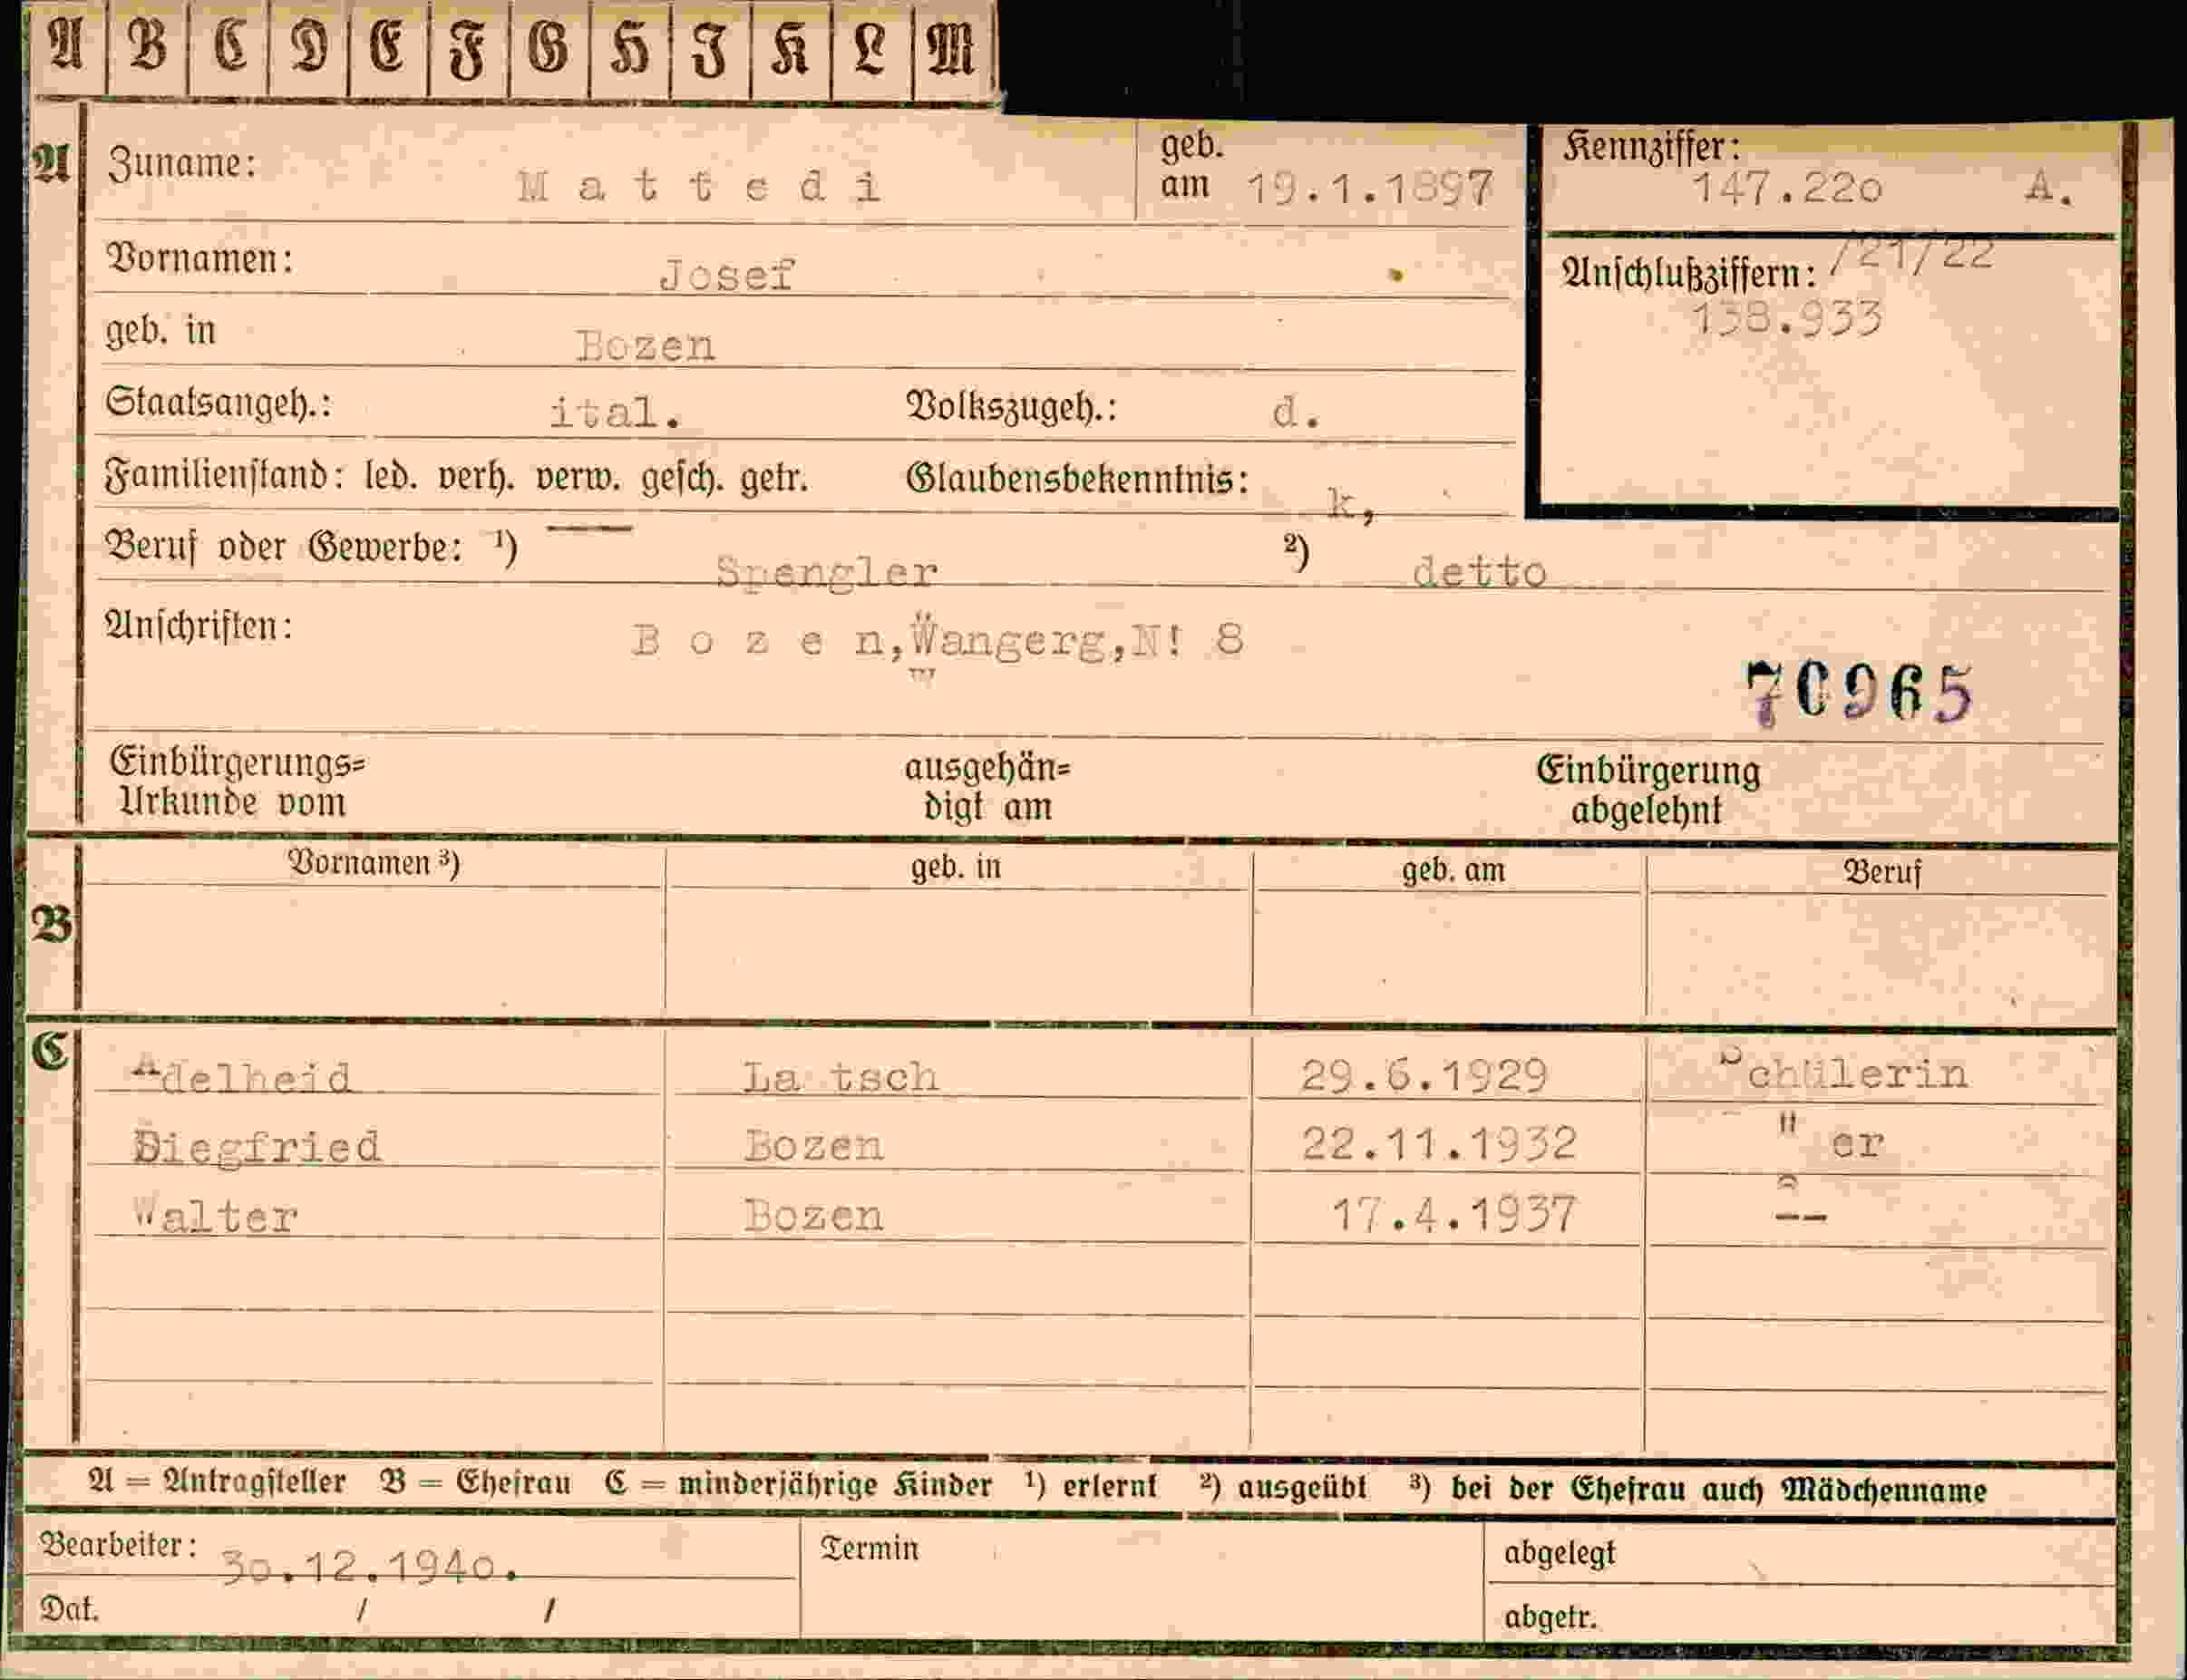 A B C D E F G H I K L M
A Zuname: Mattedi geb. am 19.1.1897 Kennziffer: 147.220 A.
Vornamen: Josef Anschlußziffern: /21/22
geb. in Bozen 138.933
Staatsangeh.: ital. Volkszugeh.: d.
Familienstand: led. verh. verw. gesch. getr. Glaubensbekenntnis: k,
Beruf oder Gewerbe: ¹) Spengler ²) detto
Anschriften: Bozen, Wangerg, N! 8
70965
Einbürgerungs= Urkunde vom ausgehän= digt am Einbürgerung abgelehnt
Vornamen ³) geb. in geb. am Beruf
B
C Adelheid La tsch 29.6.1929 Schülerin
Siegfried Bozen 22.11.1932 " er
Walter Bozen 17.4.1937 --
A = Antragsteller B = Ehefrau C = minderjährige Kinder ¹) erlernt ²) ausgeübt ³) bei der Ehefrau auch Mädchenname
Bearbeiter: 30.12.1940. Termin abgelegt
Dat. / / abgetr.